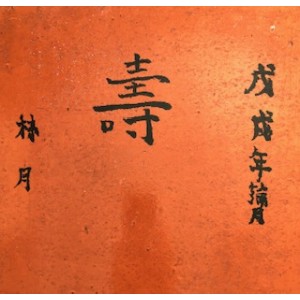 戊戌年月
壽
林月